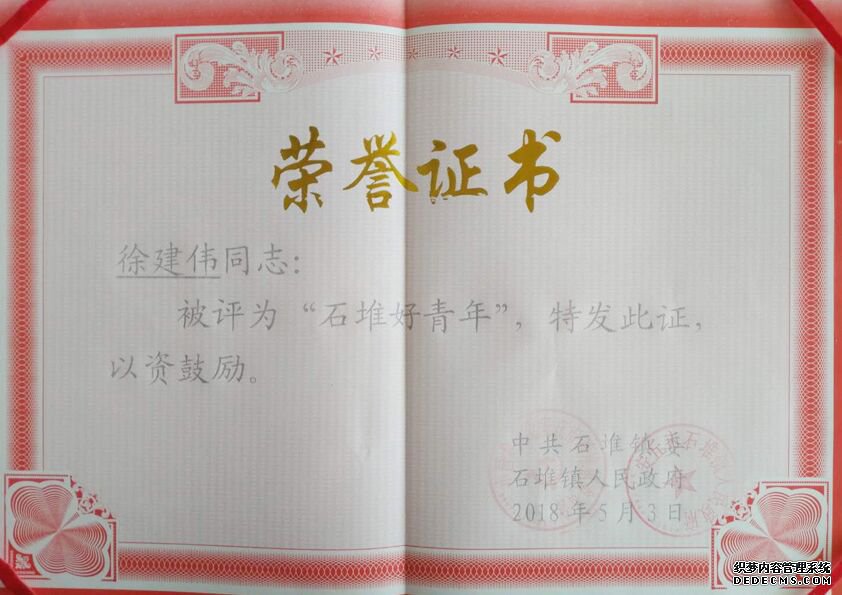 荣誉证书
徐建伟同志:
被评为“石堆好青年”,特发此证,
以资鼓励。
中共石堆镇委
石堆镇人民政府
2018年5月3日
织梦内容管理系统
DEDECMS.COM